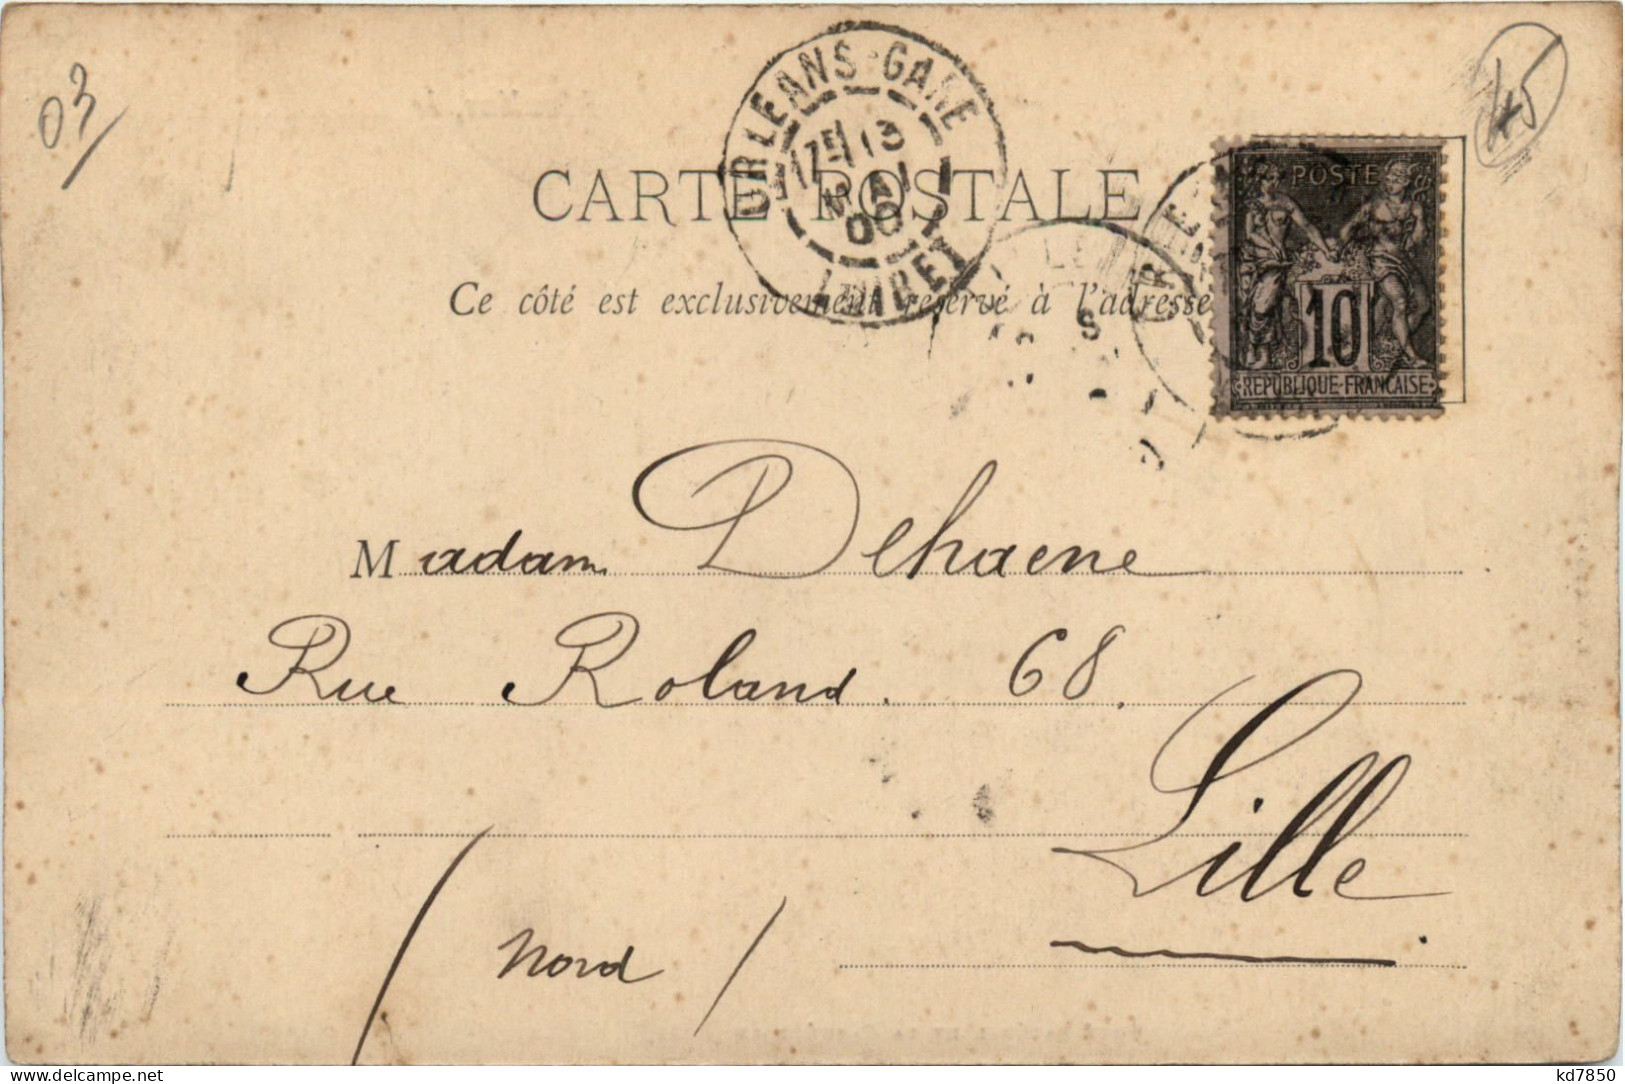 03
45
ORLEANS-GARE
12E 13
MAI
00
LOIRET
CARTE POSTALE
POSTE
10
REPUBLIQUE-FRANCAISE
Ce côté est exclusivement réservé à l'adresse
Madam Dehaene
Rue Roland. 68.
Lille
(Nord)
kd7850